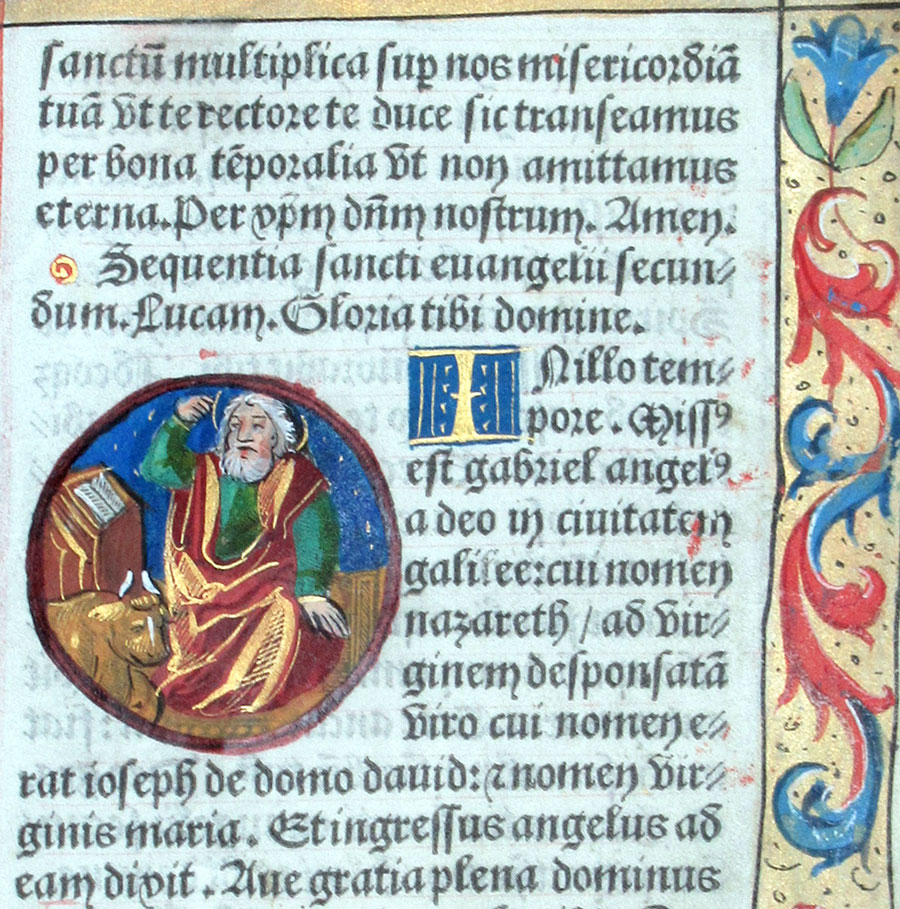 sanctū multiplica suꝑ nos misericordiā
tuā vt te rectore te duce sic transeamus
per bona tēporalia vt non amittamus
eterna. Per xp̄m dn̄m nostrum. Amen.
Sequentia sancti euangelii secun⸗
dum. Lucam. Gloria tibi domine.
IN illo tem⸗
pore. Missꝰ
est gabriel angelꝰ
a deo in ciuitatem
galilee: cui nomen
nazareth / ad vir⸗
ginem desponsatā
viro cui nomen e⸗
rat ioseph de domo dauid: ⁊ nomen vir⸗
ginis maria. Et ingressus angelus ad
eam dixit. Aue gratia plena dominus